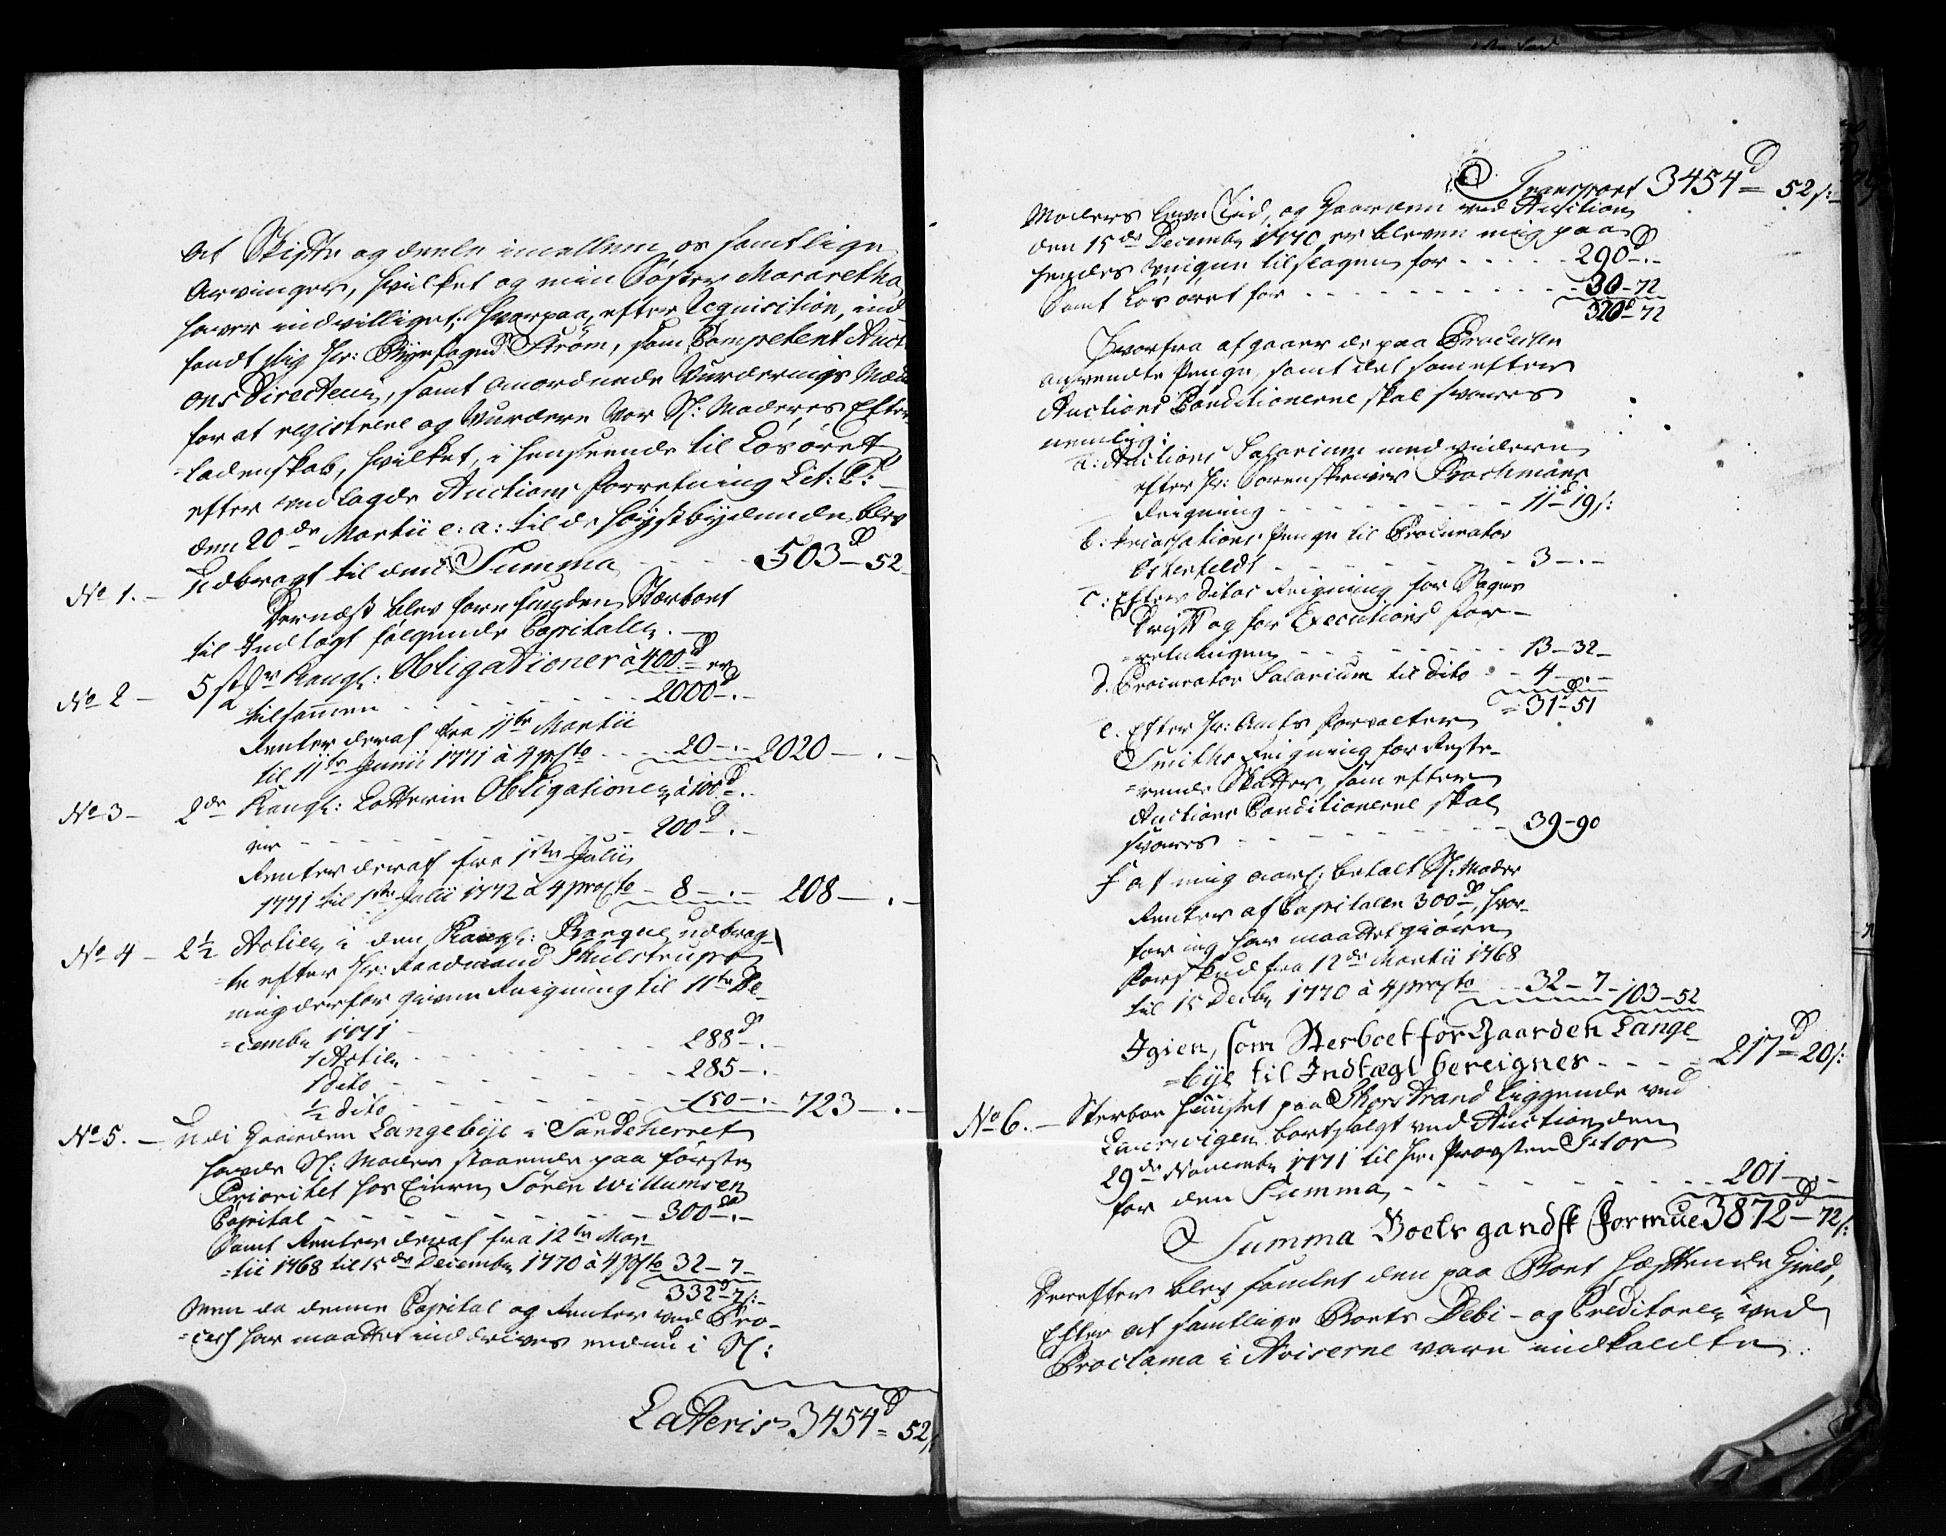 at Skifte og deele imellem os samtlige
Arvinger, hvilket og min Søster Mararetha
haver indvilliget; hvorpaa, efter Requisition, ind-
fandt sig Hr: Byefoged Strøm, som Competent Aucti-
ons Directeur, samt anordnede Vurderings Mænd
for at registrere og vurdere vor Sl: Moders Efter-
=ladenskab, hvilket, i henseende til Løsøret
efter vedlagde Auctions Forretning Lit: C:
den 20de Martii e: a: til de høystbydende, blev
No 1. - Udbragt til den Summa - - - 503d - 52
Dernæst blev forefunden Stærboet
til Indtægt følgende Capitaler. -
No 2 - 5 st. Kongl: Obligationer à 400d er
tilsammen - - - 2000d - . -
Renter deraf fra 11te Martii
til 11te Junii 1771 à 4 prCto - - 20 - . - 2020 - . -
No 3 - 2de Kongl: Lotterie Obligationer à 100d - . -
er - - - 200d - . -
Renter deraf fra 1ste Julii
1771 til 1ste Julii 1772 à 4 prCto - 8 - . - 208 - . -
No 4 - 2½ Actier i den Kongl: Banque, udbrag-
=te efter Hr: Raadmand Skulstrups
mig derfor given Reigning til 11te De-
=cembr 1771 -
1 Actie - - - 288d - . -
1 dito - - - 285 - . -
½ dito - - - 150 - . - 723 - . -
No 5. - Udi Gaarden Langebÿe i Sandeherret
havde Sl: Moder staaende paa første
Prioritet hos Eieren Sören Willumsen
Capital - - - 300d - . -
Samt Renter deraf fra 12te Mar-
=tii 1768 til 15de Decembr 1770 à 4 prCto 32 - 7 -
332d - 7 s: -
Men da denne Capital og Renter ved Pro-
=cess har maattet inddrives endnu i Sl:
Lateris 3454d = 52 s:
Transport 3454d = 52 s: -
Moders Leve Tid, og Gaarden ved Auction
den 15de Decembr 1770 er bleven mig paa
hendes veigne tilslagen for - - - 290d - . -
Samt Løsøret for - - - 30 - 72
320d - 72
Hvorfra afgaaer de paa Proceduren
anvendte Penge, samt det som efter
Auctions Conditionerne skal svares
nemlig:
a: Auctions Salarium med videre
efter Hr: Sorenskriver Brochmans
Reigning - - - 11d - 19 s:
b: Penge til Procurator
Osterfeldt - - - 3 - . -
c: Efter Ditos Reigning for Sagens
Drift og for Executions For-
=retningen - - - 13 - 32 -
d. Procurator Salarium til dito - - 4 - . -
= 31d - 51
e. Efter Hr: Amts Forvalter
Smiths Reigning for Reste-
=rende Skatter, som efter
Auctions Conditionerne skal
svares - - - 39 - 90
f af mig aarl: betalt Sl: Moder
Renter af Capitalen 300d, hvor-
for jeg har maattet giøre
Forskud fra 12de Martii 1768
til 15 Decbr 1770 à 4 prCto - - 32 - 7 - 103 - 52
Igien, som Sterboet for Gaarden Lange-
=bÿe til Indtægt bereignes - - - 217d = 20 s:
No 6. - Sterboe Huuset paa Thorstrand liggende ved
Laurwigen bortsolgt ved Auction den
29de Novembr 1771 til Hr: Provsten
for den Summa - - - 201 - . -
Summa Boets gandske Formue 3872d - 72 s:
Derefter blev samlet den paa Boet hæftende Gield,
Efter at samtlige Boets Debi- og Creditorer ved
Proclama i Aviserne vare indkaldte